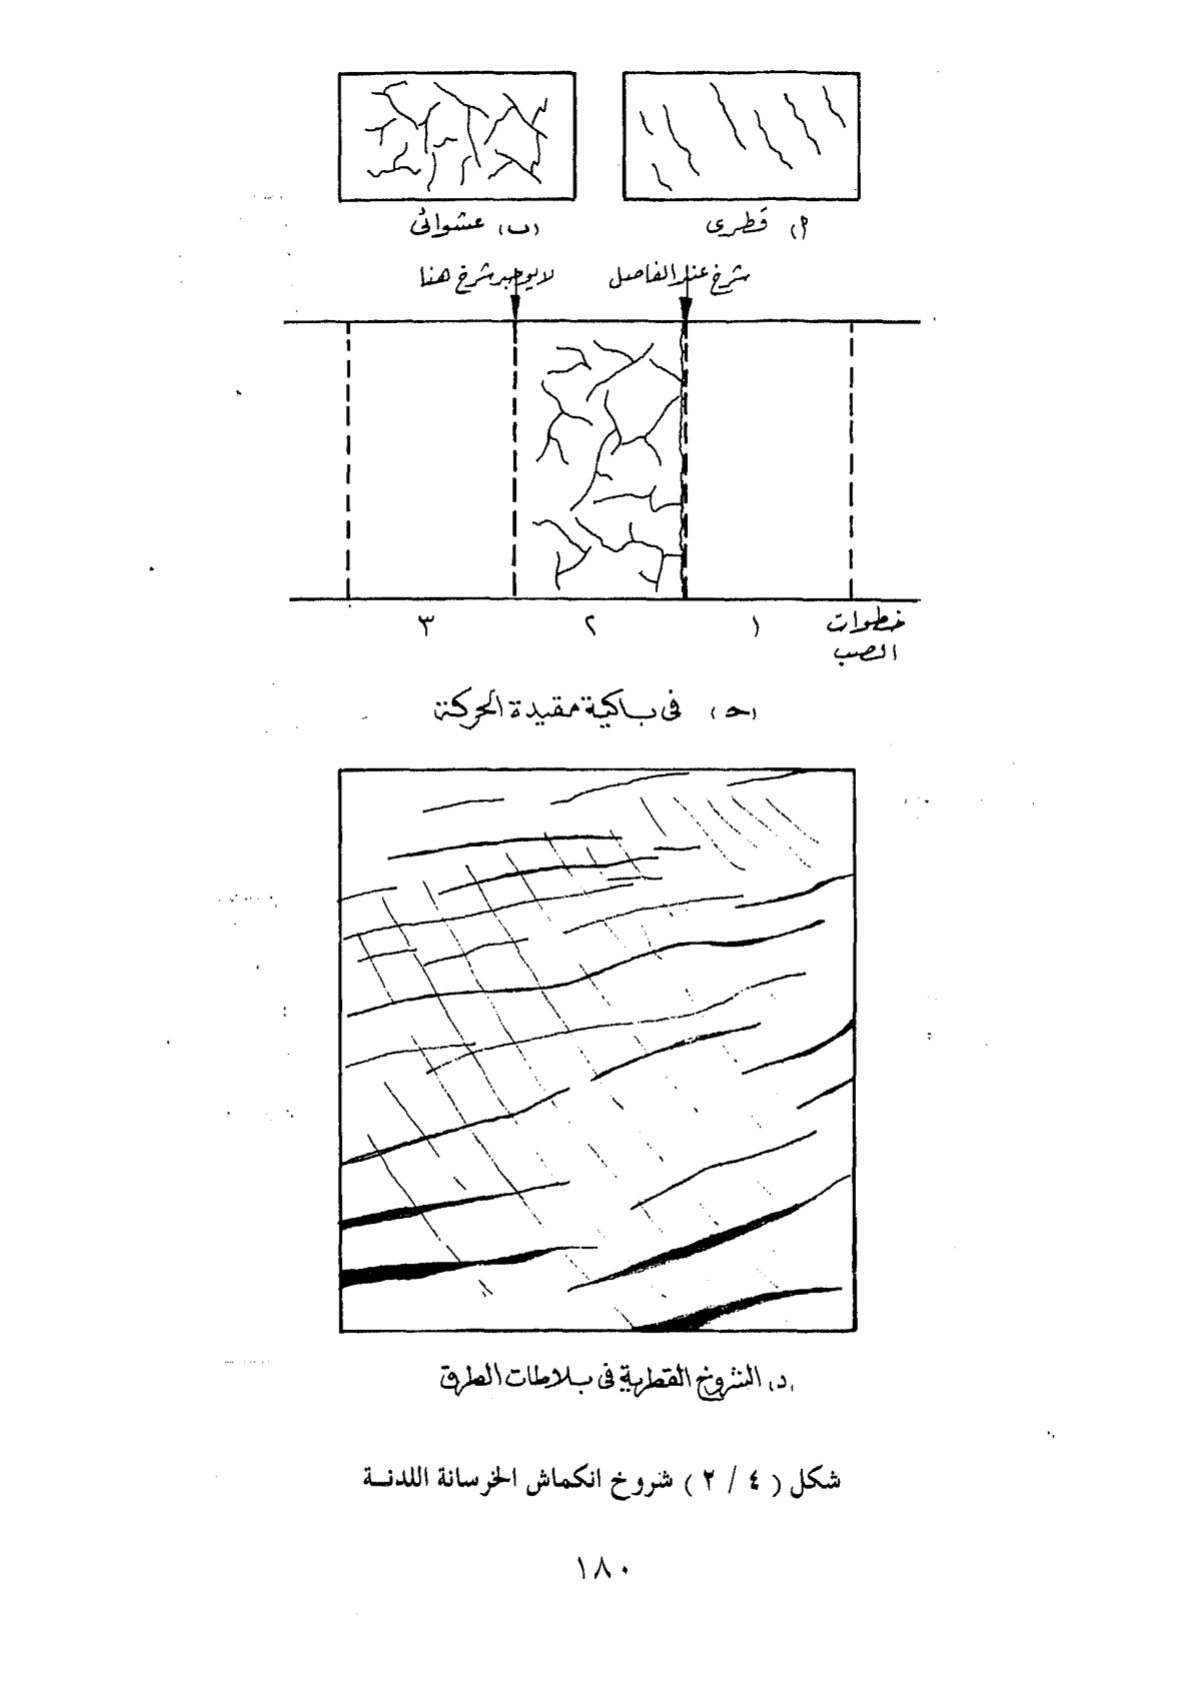 (أ) قطرى
(ب) عشوائى
شرخ عند الفاصل
لا يوجد شرخ هنا
خطوات
الصب
١
٢
٣
(حـ) فى باكية مقيدة الحركة
(د) الشروخ القطرية فى بلاطات الطرق
شكل ( ٤ / ٢ ) شروخ انكماش الخرسانة اللدنــة
١٨٠